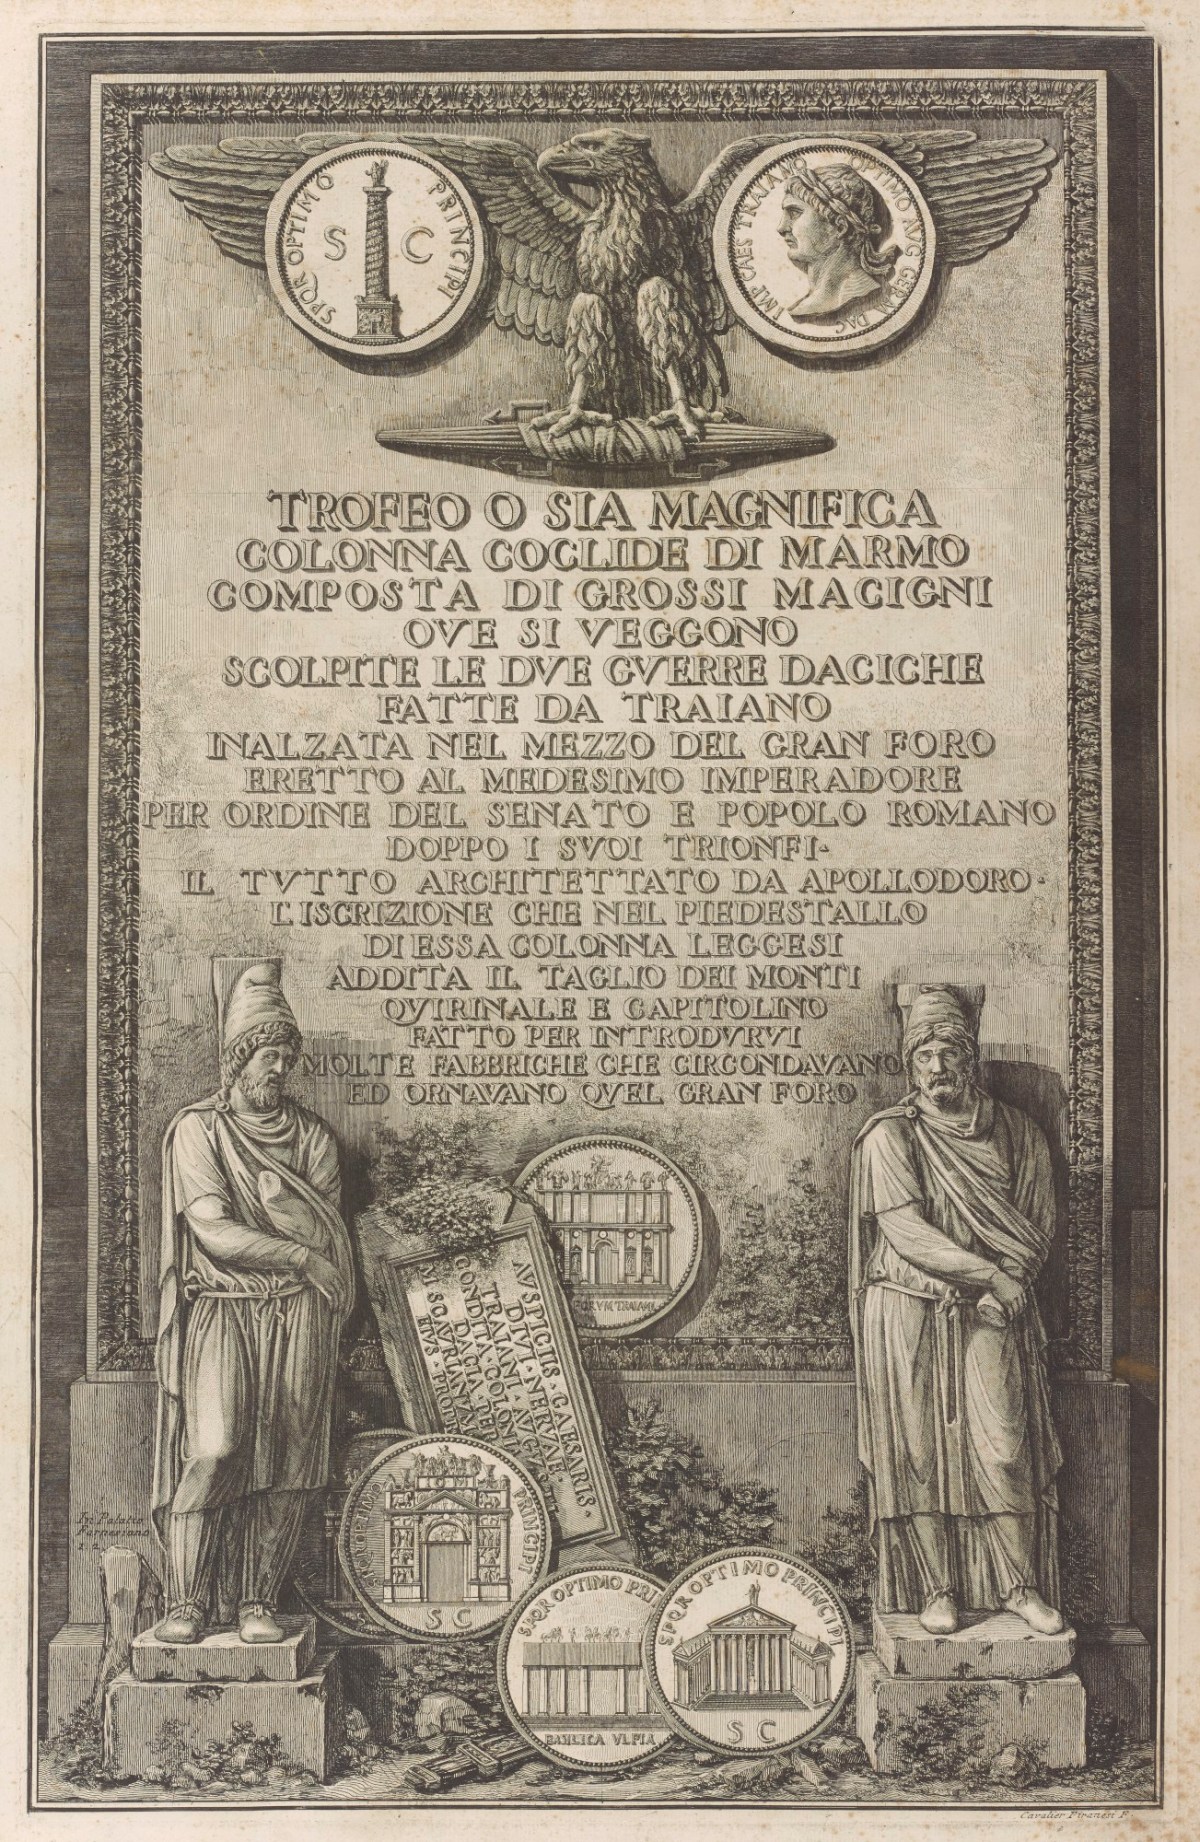 SPQR OPTIMO PRINCIPI
S C
IMP CAES TRAIANO OPTIMO AVG GERM DAC
TROFEO O SIA MAGNIFICA
COLONNA COCLIDE DI MARMO
COMPOSTA DI GROSSI MACIGNI
OVE SI VEGGONO
SCOLPITE LE DVE GVERRE DACICHE
FATTE DA TRAIANO
INALZATA NEL MEZZO DEL GRAN FORO
ERETTO AL MEDESIMO IMPERADORE
PER ORDINE DEL SENATO E POPOLO ROMANO
DOPPO I SVOI TRIONFI·
IL TVTTO ARCHITETTATO DA APOLLODORO·
L'ISCRIZIONE CHE NEL PIEDESTALLO
DI ESSA COLONNA LEGGESI
ADDITA IL TAGLIO DEI MONTI
QVIRINALE E CAPITOLINO
FATTO PER INTRODVRVI
MOLTE FABBRICHE CHE CIRCONDAVANO
ED ORNAVANO QVEL GRAN FORO
FORVM TRAIANI
AVSPICIIS · CAESARIS ·
DIVI · NERVAE ·
TRAIANI · AVGVSTI
CONDITA · COLONIA
DACIA · PER
M · SCAVRIANVM
EIVS · PROPR
In Palatio
Farnesiano
1. 2.
SPQR OPTIMO PRINCIPI
I O M
S C
SPQR OPTIMO PRI
BASILICA VLPIA
SPQR OPTIMO PRINCIPI
S C
Cavalier Piranesi F.